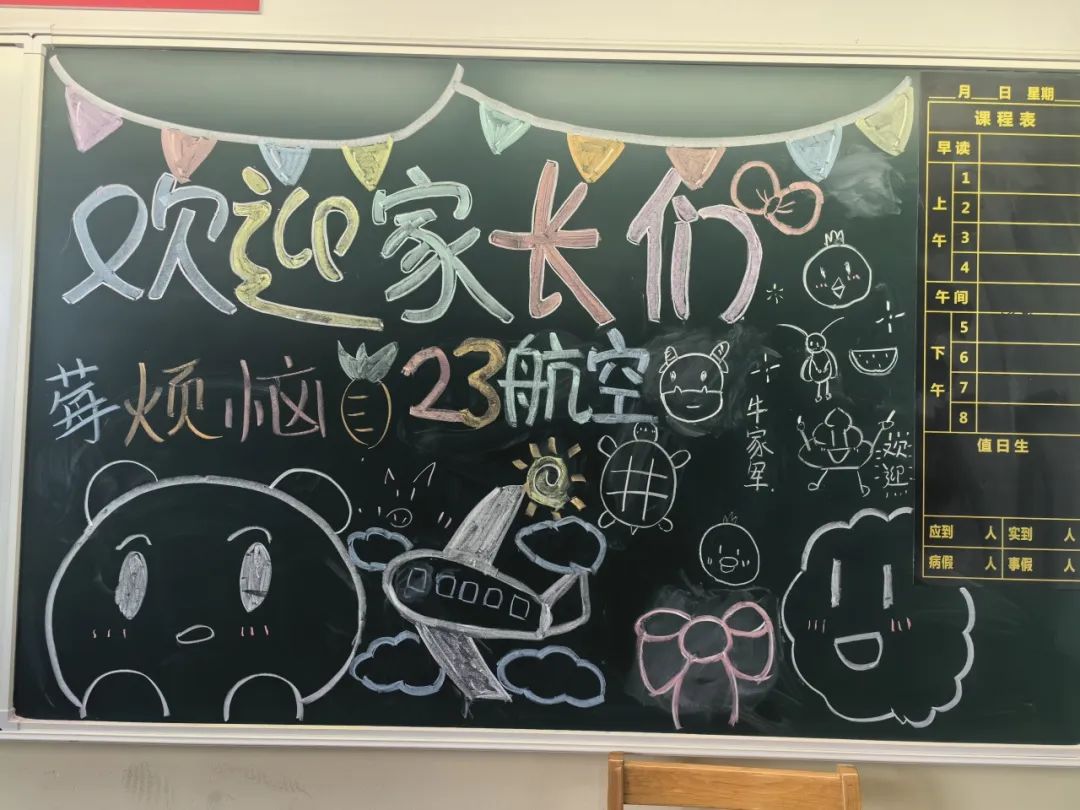 欢迎家长们
莓烦恼 23航空
牛家军
欢迎
月 日 星期
课程表
早读
上午
1
2
3
4
午间
下午
5
6
7
8
值日生
应到 人 实到 人
病假 人 事假 人